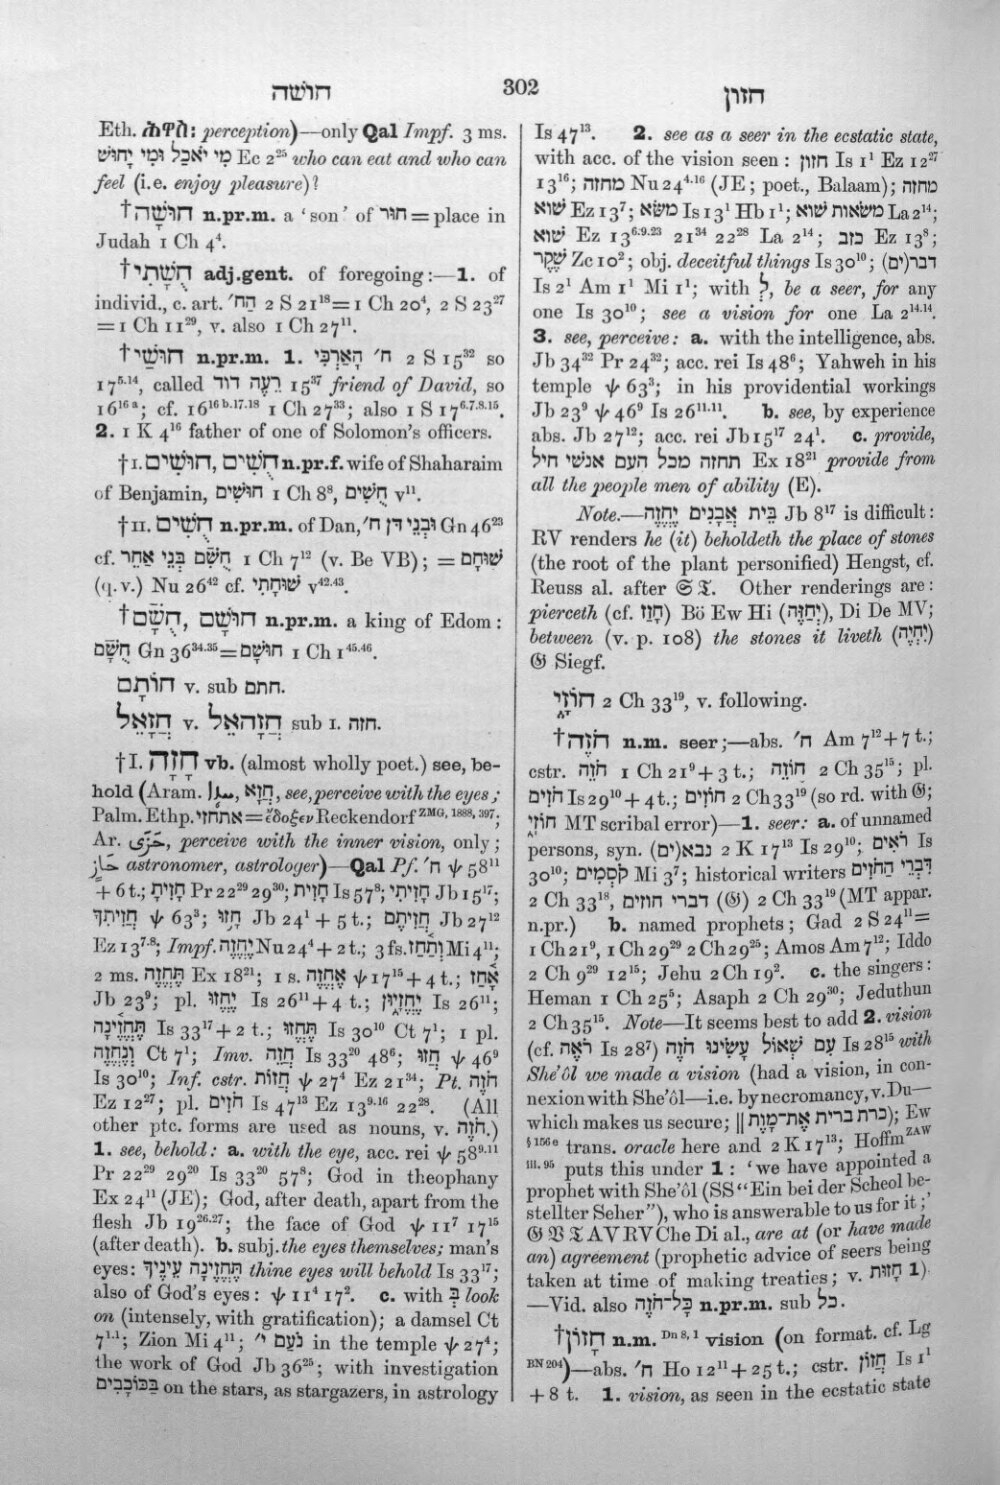 חושה
302
חזון
Eth. ሕዋስ: perception)—only Qal Impf. 3 ms.
מִי יֹאכַל וּמִי יָחוּשׁ Ec 2²⁵ who can eat and who can
feel (i.e. enjoy pleasure)?
†חוּשָׁה n.pr.m. a ‘son’ of חוּר = place in
Judah 1 Ch 4⁴.
†חֻשָׁתִי adj.gent. of foregoing:—1. of
individ., c. art. הַח׳ 2 S 21¹⁸ = 1 Ch 20⁴, 2 S 23²⁷
= 1 Ch 11²⁹, v. also 1 Ch 27¹¹.
†חוּשַׁי n.pr.m. 1. ח׳ הָאַרְכִּי 2 S 15³² so
17⁵·¹⁴, called רֵעֶה דוד 15³⁷ friend of David, so
16¹⁶ᵃ; cf. 16¹⁶ᵇ·¹⁷·¹⁸ 1 Ch 27³³; also 1 S 17⁶·⁷·⁸·¹⁵.
2. 1 K 4¹⁶ father of one of Solomon’s officers.
†I. חוּשִׁים, חֻשִׁים n.pr.f. wife of Shaharaim
of Benjamin, חוּשִׁים 1 Ch 8⁸, חֻשִׁים v¹¹.
†II. חֻשִׁים n.pr.m. of Dan, וּבְנֵי דן ח׳ Gn 46²³
cf. חֻשִׁם בְּנֵי אַחֵר 1 Ch 7¹² (v. Be VB); = שׁוּחָם
(q.v.) Nu 26⁴² cf. שׁוּחָתִי v⁴²·⁴³.
†חֻשָׁם, חוּשָׁם n.pr.m. a king of Edom:
חֻשָׁם Gn 36³⁴·³⁵ = חוּשָׁם 1 Ch 1⁴⁵·⁴⁶.
חוֹתָם v. sub חתם.
חֲזָאֵל v. חֲזָהאֵל sub I. חזה.
†I. חָזָה vb. (almost wholly poet.) see, be-
hold (Aram. חֲזָא, see, perceive with the eyes;
Palm. Ethp. אתחזי = ἔδοξεν Reckendorf ZMG, 1888, 397;
Ar. حَزَى, perceive with the inner vision, only;
حَازٍ astronomer, astrologer)—Qal Pf. ח׳ ψ 58¹¹
+ 6 t.; חָזִיתָ Pr 22²⁹ 29²⁰; חָזִית Is 57⁸; חָזִיתִי Jb 15¹⁷;
חֲזִיתִךָ ψ 63³; חָזוּ Jb 24¹ + 5 t.; חֲזִיתֶם Jb 27¹²
Ez 13⁷·⁸; Impf. יֶחֱזֶה Nu 24⁴ + 2 t.; 3 fs. וְתַחַז Mi 4¹¹;
2 ms. תֶּחֱזֶה Ex 18²¹; 1 s. אֶחֱזֶה ψ 17¹⁵ + 4 t.; אָחַז
Jb 23⁹; pl. יֶחֱזוּ Is 26¹¹ + 4 t.; יֶחֱזָיוּן Is 26¹¹;
תֶּחֱזֶינָה Is 33¹⁷ + 2 t.; תֶּחֱזוּ Is 30¹⁰ Ct 7¹; 1 pl.
וְנֶחֱזֶה Ct 7¹; Imv. חֲזֵה Is 33²⁰ 48⁶; חֲזוּ ψ 46⁹
Is 30¹⁰; Inf. cstr. חֲזוֹת ψ 27⁴ Ez 21³⁴; Pt. חֹזֶה
Ez 12²⁷; pl. חֹזִים Is 47¹³ Ez 13⁹·¹⁶ 22²⁸. (All
other ptc. forms are used as nouns, v. חֹזֶה.)
1. see, behold: a. with the eye, acc. rei ψ 58⁹·¹¹
Pr 22²⁹ 29²⁰ Is 33²⁰ 57⁸; God in theophany
Ex 24¹¹ (JE); God, after death, apart from the
flesh Jb 19²⁶·²⁷; the face of God ψ 11⁷ 17¹⁵
(after death). b. subj. the eyes themselves; man’s
eyes: תֶּחֱזֶינָה עֵינֶיךָ thine eyes will behold Is 33¹⁷;
also of God’s eyes: ψ 11⁴ 17². c. with בְּ look
on (intensely, with gratification); a damsel Ct
7¹·¹; Zion Mi 4¹¹; נֹעַם י׳ in the temple ψ 27⁴;
the work of God Jb 36²⁵; with investigation
בַּכּוֹכָבִים on the stars, as stargazers, in astrology
Is 47¹³. 2. see as a seer in the ecstatic state,
with acc. of the vision seen: חזון Is 1¹ Ez 12²⁷
13¹⁶; מחזה Nu 24⁴·¹⁶ (JE; poet., Balaam); מחזה
שוא Ez 13⁷; משׂא Is 13¹ Hb 1¹; משאות שוא La 2¹⁴;
שוא Ez 13⁶·⁹·²³ 21³⁴ 22²⁸ La 2¹⁴; כזב Ez 13⁸;
שֶׁקֶר Zc 10²; obj. deceitful things Is 30¹⁰; דבר(ים)
Is 2¹ Am 1¹ Mi 1¹; with לְ, be a seer, for any
one Is 30¹⁰; see a vision for one La 2¹⁴·¹⁴.
3. see, perceive: a. with the intelligence, abs.
Jb 34³² Pr 24³²; acc. rei Is 48⁶; Yahweh in his
temple ψ 63³; in his providential workings
Jb 23⁹ ψ 46⁹ Is 26¹¹·¹¹. b. see, by experience
abs. Jb 27¹²; acc. rei Jb 15¹⁷ 24¹. c. provide,
תחזה מכל העם אנשי חיל Ex 18²¹ provide from
all the people men of ability (E).
Note.—בֵּית אֲבָנִים יֶחֱזֶה Jb 8¹⁷ is difficult:
RV renders he (it) beholdeth the place of stones
(the root of the plant personified) Hengst, cf.
Reuss al. after 𝔖 𝔗. Other renderings are:
pierceth (cf. חָזוּ) Bö Ew Hi (יְחַזֶּה), Di De MV;
between (v. p. 108) the stones it liveth (יִחְיֶה)
𝔊 Siegf.
חוֹזָי 2 Ch 33¹⁹, v. following.
†חֹזֶה n.m. seer;—abs. ח׳ Am 7¹² + 7 t.;
cstr. חֹזֵה 1 Ch 21⁹ + 3 t.; חוֹזֵה 2 Ch 35¹⁵; pl.
חֹזִים Is 29¹⁰ + 4 t.; חוֹזִים 2 Ch 33¹⁹ (so rd. with 𝔊;
חוֹזָי MT scribal error)—1. seer: a. of unnamed
persons, syn. נבא(י)ם 2 K 17¹³ Is 29¹⁰; רֹאִים Is
30¹⁰; קֹסְמִים Mi 3⁷; historical writers דִּבְרֵי הַחֹזִים
2 Ch 33¹⁸, דברי חוזים (𝔊) 2 Ch 33¹⁹ (MT appar.
n.pr.) b. named prophets; Gad 2 S 24¹¹ =
1 Ch 21⁹, 1 Ch 29²⁹ 2 Ch 29²⁵; Amos Am 7¹²; Iddo
2 Ch 9²⁹ 12¹⁵; Jehu 2 Ch 19². c. the singers:
Heman 1 Ch 25⁵; Asaph 2 Ch 29³⁰; Jeduthun
2 Ch 35¹⁵. Note—It seems best to add 2. vision
(cf. רֹאֶה Is 28⁷) עִם שְׁאוֹל עָשִׂינוּ חֹזֶה Is 28¹⁵ with
She’ôl we made a vision (had a vision, in con-
nexion with She’ôl—i.e. by necromancy, v. Du—
which makes us secure; ‖ כרת ברית אֶת־מָוֶת); Ew
§ 156e trans. oracle here and 2 K 17¹³; Hoffm ZAW
III. 95 puts this under 1: ‘we have appointed a
prophet with She’ôl (SS “Ein bei der Scheol be-
stellter Seher”), who is answerable to us for it;’
𝔊 𝔙 𝔗 AV RV Che Di al., are at (or have made
an) agreement (prophetic advice of seers being
taken at time of making treaties; v. חָזוּת 1).
—Vid. also כָּל־חֹזֶה n.pr.m. sub כל.
†חָזוֹן n.m. Dn 8, 1 vision (on format. cf. Lg
BN 204)—abs. ח׳ Ho 12¹¹ + 25 t.; cstr. חֲזוֹן Is 1¹
+ 8 t. 1. vision, as seen in the ecstatic state